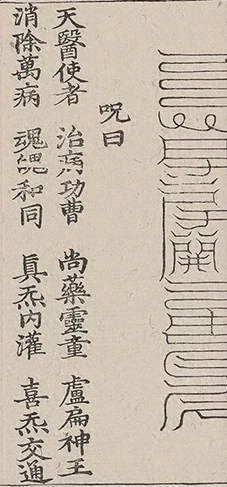 呪曰
天醫使者 治病功曹 尚藥靈童 盧扁神王
消除萬病 魂魄和同 眞炁内灌 喜炁交通